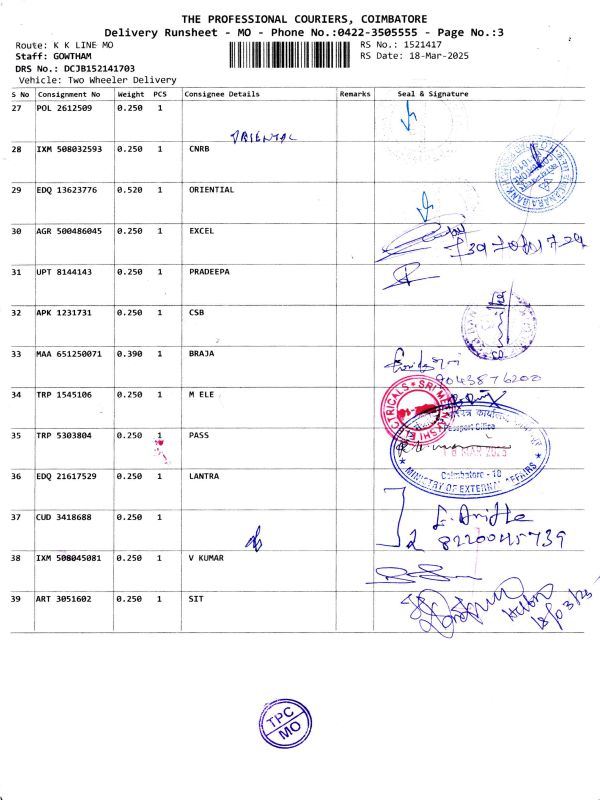 THE PROFESSIONAL COURIERS, COIMBATORE
Delivery Runsheet - MO - Phone No.:0422-3505555 - Page No.:3
Route: K K LINE MO
RS No.: 1521417
Staff: GOWTHAM
RS Date: 18-Mar-2025
DRS No.: DCJB152141703
Vehicle: Two Wheeler Delivery
S No Consignment No Weight PCS Consignee Details Remarks Seal & Signature
27 POL 2612509 0.250 1
ORIENTAL
28 IXM 508032593 0.250 1 CNRB
29 EDQ 13623776 0.520 1 ORIENTIAL
30 AGR 500486045 0.250 1 EXCEL
31 UPT 8144143 0.250 1 PRADEEPA
32 APK 1231731 0.250 1 CSB
33 MAA 651250071 0.390 1 BRAJA
9043876200
34 TRP 1545106 0.250 1 M ELE
35 TRP 5303804 0.250 1 PASS
Passport Office
18 MAR 2025
Coimbatore - 18
MINISTRY OF EXTERNAL AFFAIRS
36 EDQ 21617529 0.250 1 LANTRA
37 CUD 3418688 0.250 1
8220045739
38 IXM 508045081 0.250 1 V KUMAR
39 ART 3051602 0.250 1 SIT
18/03/25
TPC
MO